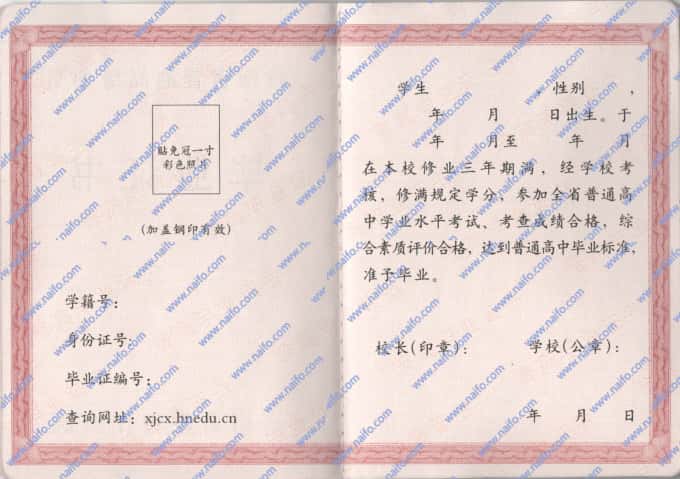 贴免冠一寸
彩色照片
(加盖钢印有效)
学籍号:
身份证号:
毕业证编号:
查询网址: xjcx.hnedu.cn
学生 , 性别 ,
年 月 日出生。于
年 月至 年 月
在本校修业三年期满, 经学校考
核, 修满规定学分、参加全省普通高
中学业水平考试、考查成绩合格, 综
合素质评价合格, 达到普通高中毕业标准,
准予毕业。
校长(印章): 学校(公章):
年 月 日
www.naifo.com